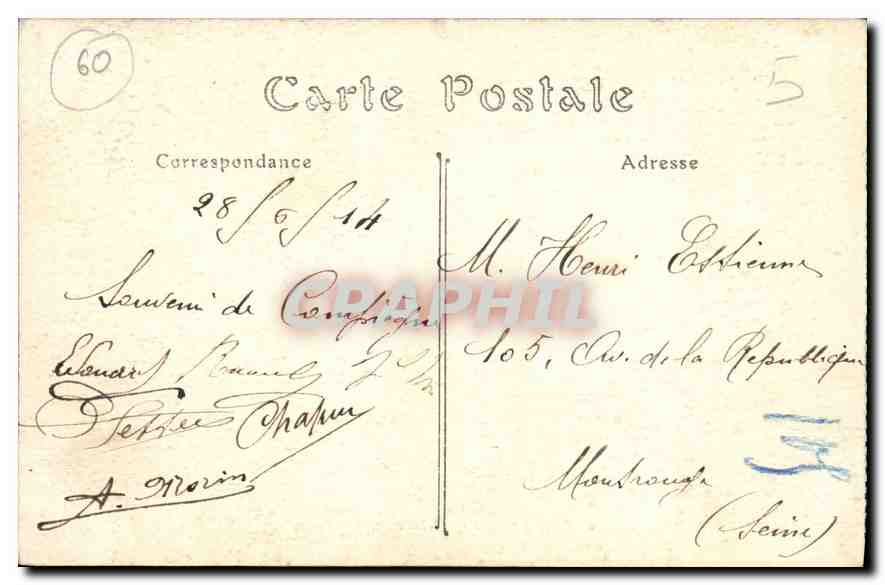 60
5
Carte Postale
Correspondance
Adresse
28/6/14
Souvenir de Compiègne
Edouard
Chapuy
A. Morin
M. Henri Estienne
105, Av. de la République
Montrouge
(Seine)
CPAPHIL